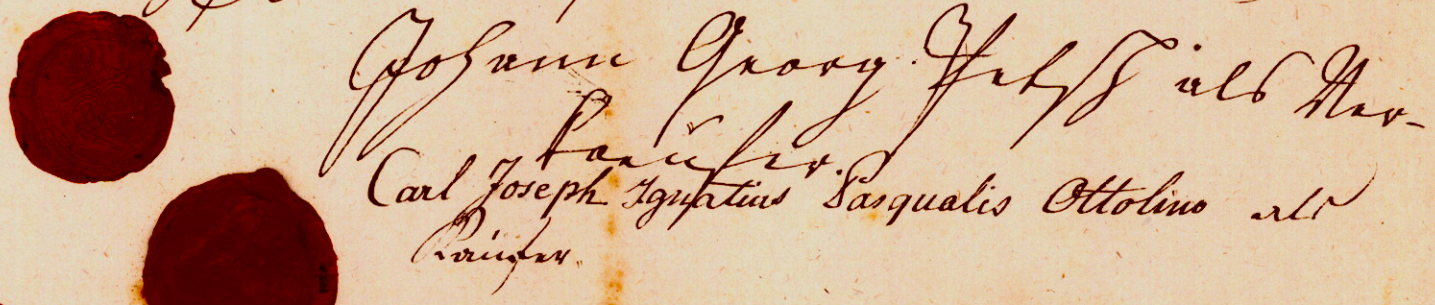 Johann Georg Petsch als Ver-
kaeufer.
Carl Joseph Ignatius Pasqualis Ottolino als
Käufer.